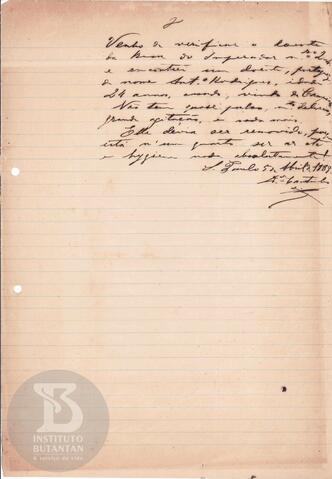 2
Venho de verificar o doente
da Rua do Imperador nº 2
e encontrei um doente,
de nome Antº Rodrigues,
24 annos, vindo de
Não tem quase pulso,
grande agitação, e nada mais.
Elle deve ser removido,
está n'um quarto sem ar
e hygiene nada absolutamente!
S. Paulo 5 de Abril de 1889
INSTITUTO
BUTANTAN
A serviço da vida